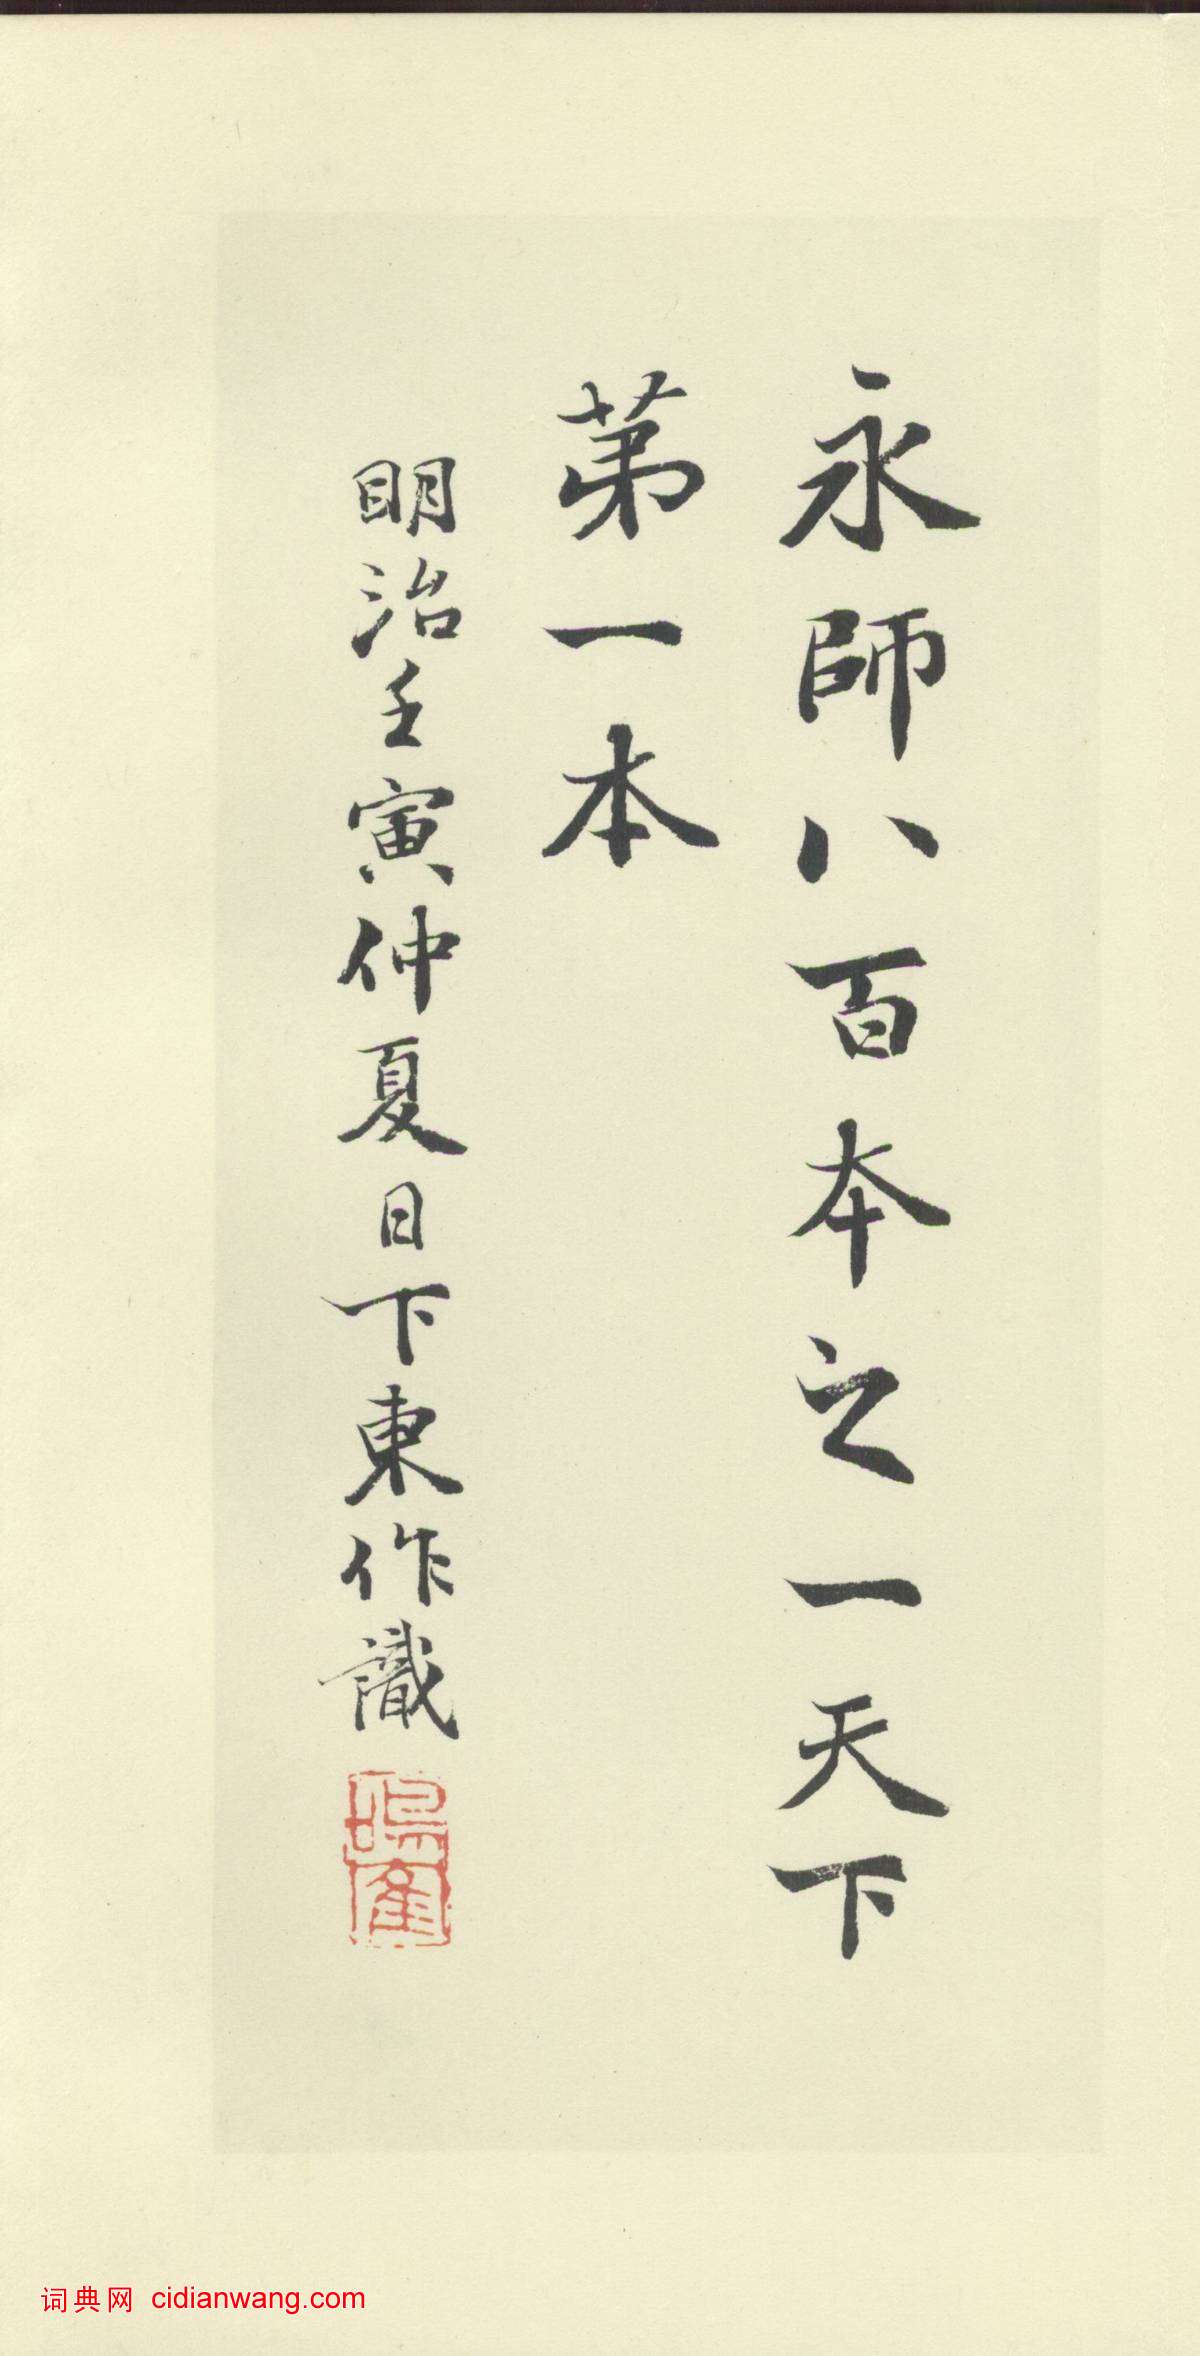 永師八百本之一天下
苐一本
明治壬寅仲夏日下東作識
鳴鶴
词典网 cidianwang.com